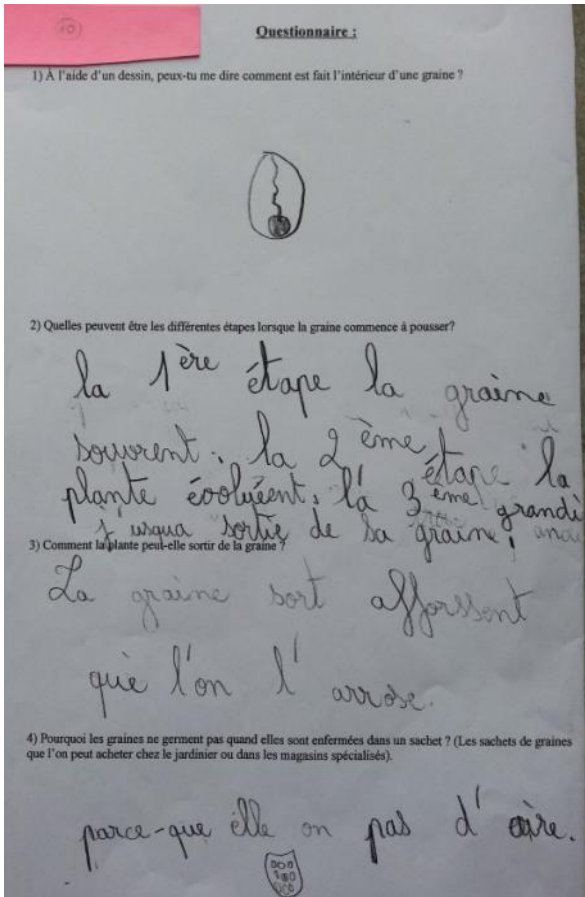 10
Questionnaire :
1) À l'aide d'un dessin, peux-tu me dire comment est fait l'intérieur d'une graine ?
2) Quelles peuvent être les différentes étapes lorsque la graine commence à pousser?
la 1ère étape la graine
souvrent. la 2ème étape la
plante évoluent. la 3ème grandi
jusqua sortie de sa graine.
3) Comment la plante peut-elle sortir de la graine ?
La graine sort afforssent
que l'on l'arrose.
4) Pourquoi les graines ne germent pas quand elles sont enfermées dans un sachet ? (Les sachets de graines
que l'on peut acheter chez le jardinier ou dans les magasins spécialisés).
parce-que elle on pas d'aire.